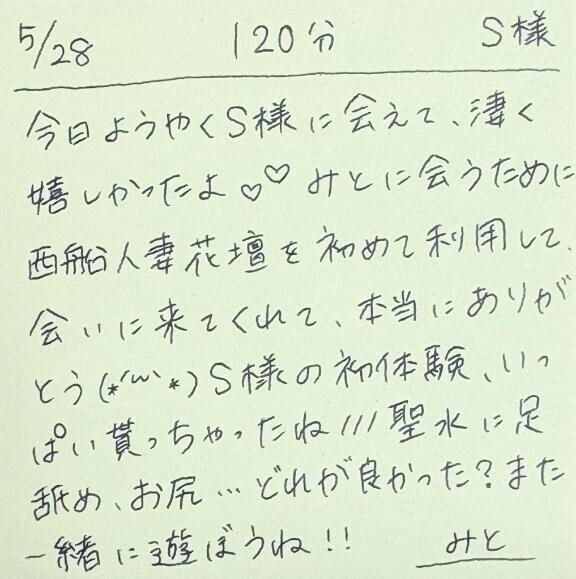 5/28 120分 S様
今日ようやくS様に会えて、凄く
嬉しかったよ♡♡みとに会うために
西船人妻花壇を初めて利用して、
会いに来てくれて、本当にありが
とう(*´ω`*)S様の初体験、いっ
ぱい貰っちゃったね///聖水に足
舐め、お尻…どれが良かった?また
一緒に遊ぼうね!! みと